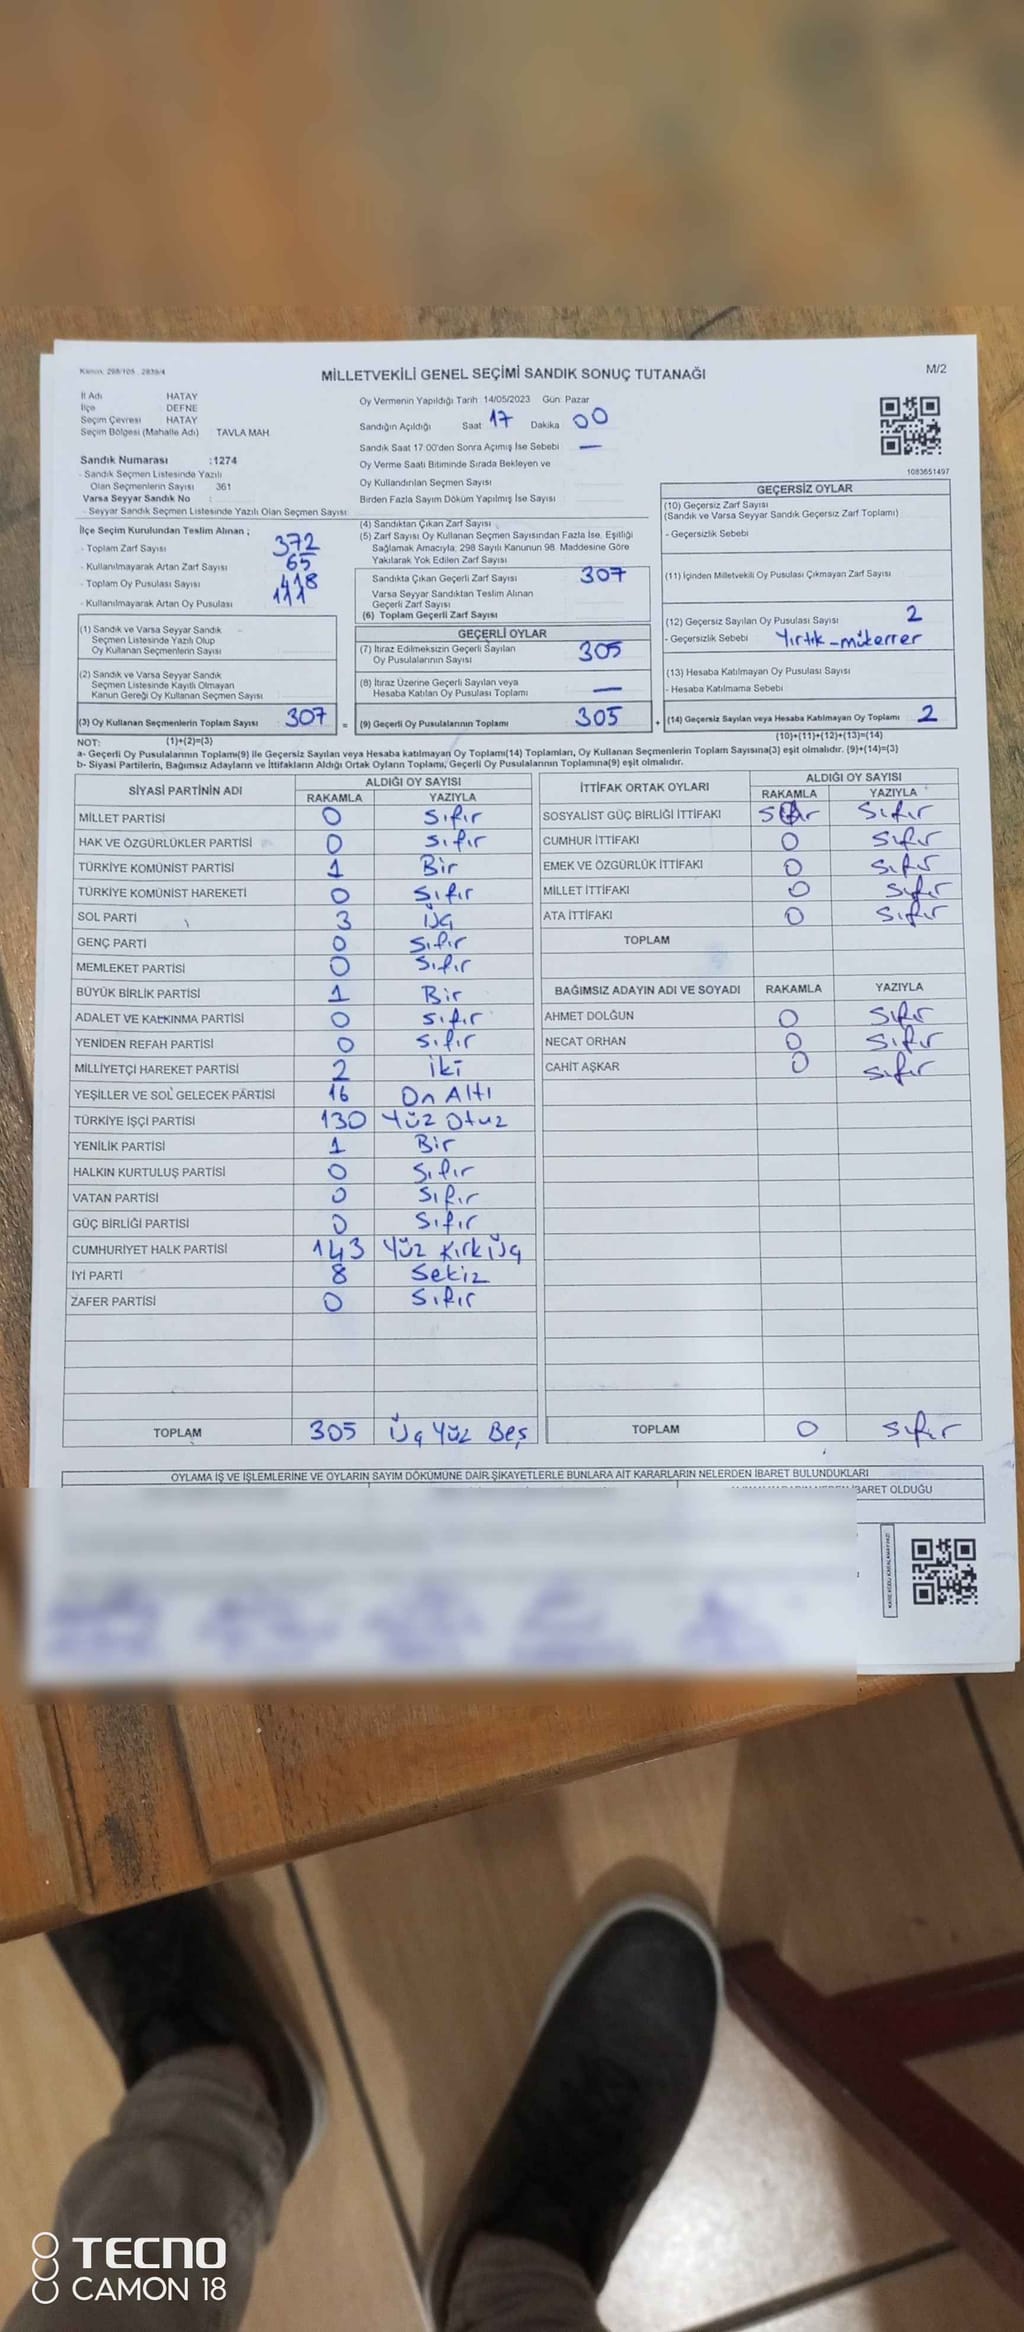 Kanun 298/105 . 2839/4
MİLLETVEKİLİ GENEL SEÇİMİ SANDIK SONUÇ TUTANAĞI
M/2
İl Adı HATAY
İlçe DEFNE
Seçim Çevresi HATAY
Seçim Bölgesi (Mahalle Adı) TAVLA MAH.
Sandık Numarası :1274
- Sandık Seçmen Listesinde Yazılı
Olan Seçmenlerin Sayısı 361
Varsa Seyyar Sandık No :
- Seyyar Sandık Seçmen Listesinde Yazılı Olan Seçmen Sayısı:
Oy Vermenin Yapıldığı Tarih 14/05/2023 Gün: Pazar
Sandığın Açıldığı Saat 17 Dakika 00
Sandık Saat 17:00'den Sonra Açımış İse Sebebi —
Oy Verme Saati Bitiminde Sırada Bekleyen ve
Oy Kullandırılan Seçmen Sayısı
Birden Fazla Sayım Döküm Yapılmış İse Sayısı
1083651497
İlçe Seçim Kurulundan Teslim Alınan ;
- Toplam Zarf Sayısı 372
- Kullanılmayarak Artan Zarf Sayısı 65
- Toplam Oy Pusulası Sayısı 418
- Kullanılmayarak Artan Oy Pusulası 111
(1) Sandık ve Varsa Seyyar Sandık
Seçmen Listesinde Yazılı Olup
Oy Kullanan Seçmenlerin Sayısı
(2) Sandık ve Varsa Seyyar Sandık
Seçmen Listesinde Kayıtlı Olmayan
Kanun Gereği Oy Kullanan Seçmen Sayısı
(3) Oy Kullanan Seçmenlerin Toplam Sayısı 307 =
(1)+(2)=(3)
(4) Sandıktan Çıkan Zarf Sayısı
(5) Zarf Sayısı Oy Kullanan Seçmen Sayısından Fazla İse, Eşitliği
Sağlamak Amacıyla, 298 Sayılı Kanunun 98. Maddesine Göre
Yakılarak Yok Edilen Zarf Sayısı
Sandıkta Çıkan Geçerli Zarf Sayısı 307
Varsa Seyyar Sandıktan Teslim Alınan
Geçerli Zarf Sayısı
(6) Toplam Geçerli Zarf Sayısı
GEÇERLİ OYLAR
(7) İtiraz Edilmeksizin Geçerli Sayılan
Oy Pusulalarının Sayısı 305
(8) İtiraz Üzerine Geçerli Sayılan veya
Hesaba Katılan Oy Pusulası Toplamı —
(9) Geçerli Oy Pusulalarının Toplamı 305 +
GEÇERSİZ OYLAR
(10) Geçersiz Zarf Sayısı
(Sandık ve Varsa Seyyar Sandık Geçersiz Zarf Toplamı)
- Geçersizlik Sebebi
(11) İçinden Milletvekili Oy Pusulası Çıkmayan Zarf Sayısı
(12) Geçersiz Sayılan Oy Pusulası Sayısı 2
- Geçersizlik Sebebi Yırtık - mükerrer
(13) Hesaba Katılmayan Oy Pusulası Sayısı
- Hesaba Katılmama Sebebi
(14) Geçersiz Sayılan veya Hesaba Katılmayan Oy Toplamı 2
(10)+(11)+(12)+(13)=(14)
NOT:
a- Geçerli Oy Pusulalarının Toplamı(9) ile Geçersiz Sayılan veya Hesaba katılmayan Oy Toplamı(14) Toplamları, Oy Kullanan Seçmenlerin Toplam Sayısına(3) eşit olmalıdır. (9)+(14)=(3)
b- Siyasi Partilerin, Bağımsız Adayların ve İttifakların Aldığı Ortak Oyların Toplamı, Geçerli Oy Pusulalarının Toplamına(9) eşit olmalıdır.
SİYASİ PARTİNİN ADI ALDIĞI OY SAYISI
RAKAMLA YAZIYLA
MİLLET PARTİSİ 0 Sıfır
HAK VE ÖZGÜRLÜKLER PARTİSİ 0 Sıfır
TÜRKİYE KOMÜNİST PARTİSİ 1 Bir
TÜRKİYE KOMÜNİST HAREKETİ 0 Sıfır
SOL PARTİ 3 Üç
GENÇ PARTİ 0 Sıfır
MEMLEKET PARTİSİ 0 Sıfır
BÜYÜK BİRLİK PARTİSİ 1 Bir
ADALET VE KALKINMA PARTİSİ 0 Sıfır
YENİDEN REFAH PARTİSİ 0 Sıfır
MİLLİYETÇİ HAREKET PARTİSİ 2 İki
YEŞİLLER VE SOL GELECEK PARTİSİ 16 On Altı
TÜRKİYE İŞÇİ PARTİSİ 130 Yüz Otuz
YENİLİK PARTİSİ 1 Bir
HALKIN KURTULUŞ PARTİSİ 0 Sıfır
VATAN PARTİSİ 0 Sıfır
GÜÇ BİRLİĞİ PARTİSİ 0 Sıfır
CUMHURİYET HALK PARTİSİ 143 Yüz Kırk Üç
İYİ PARTİ 8 Sekiz
ZAFER PARTİSİ 0 Sıfır
TOPLAM 305 Üç Yüz Beş
İTTİFAK ORTAK OYLARI ALDIĞI OY SAYISI
RAKAMLA YAZIYLA
SOSYALİST GÜÇ BİRLİĞİ İTTİFAKI 0 Sıfır
CUMHUR İTTİFAKI 0 Sıfır
EMEK VE ÖZGÜRLÜK İTTİFAKI 0 Sıfır
MİLLET İTTİFAKI 0 Sıfır
ATA İTTİFAKI 0 Sıfır
TOPLAM
BAĞIMSIZ ADAYIN ADI VE SOYADI RAKAMLA YAZIYLA
AHMET DOLĞUN 0 Sıfır
NECAT ORHAN 0 Sıfır
CAHİT AŞKAR 0 Sıfır
TOPLAM 0 Sıfır
OYLAMA İŞ VE İŞLEMLERİNE VE OYLARIN SAYIM DÖKÜMÜNE DAİR ŞİKAYETLERLE BUNLARA AİT KARARLARIN NELERDEN İBARET BULUNDUKLARI
İBARET OLDUĞU
TECNO
CAMON 18